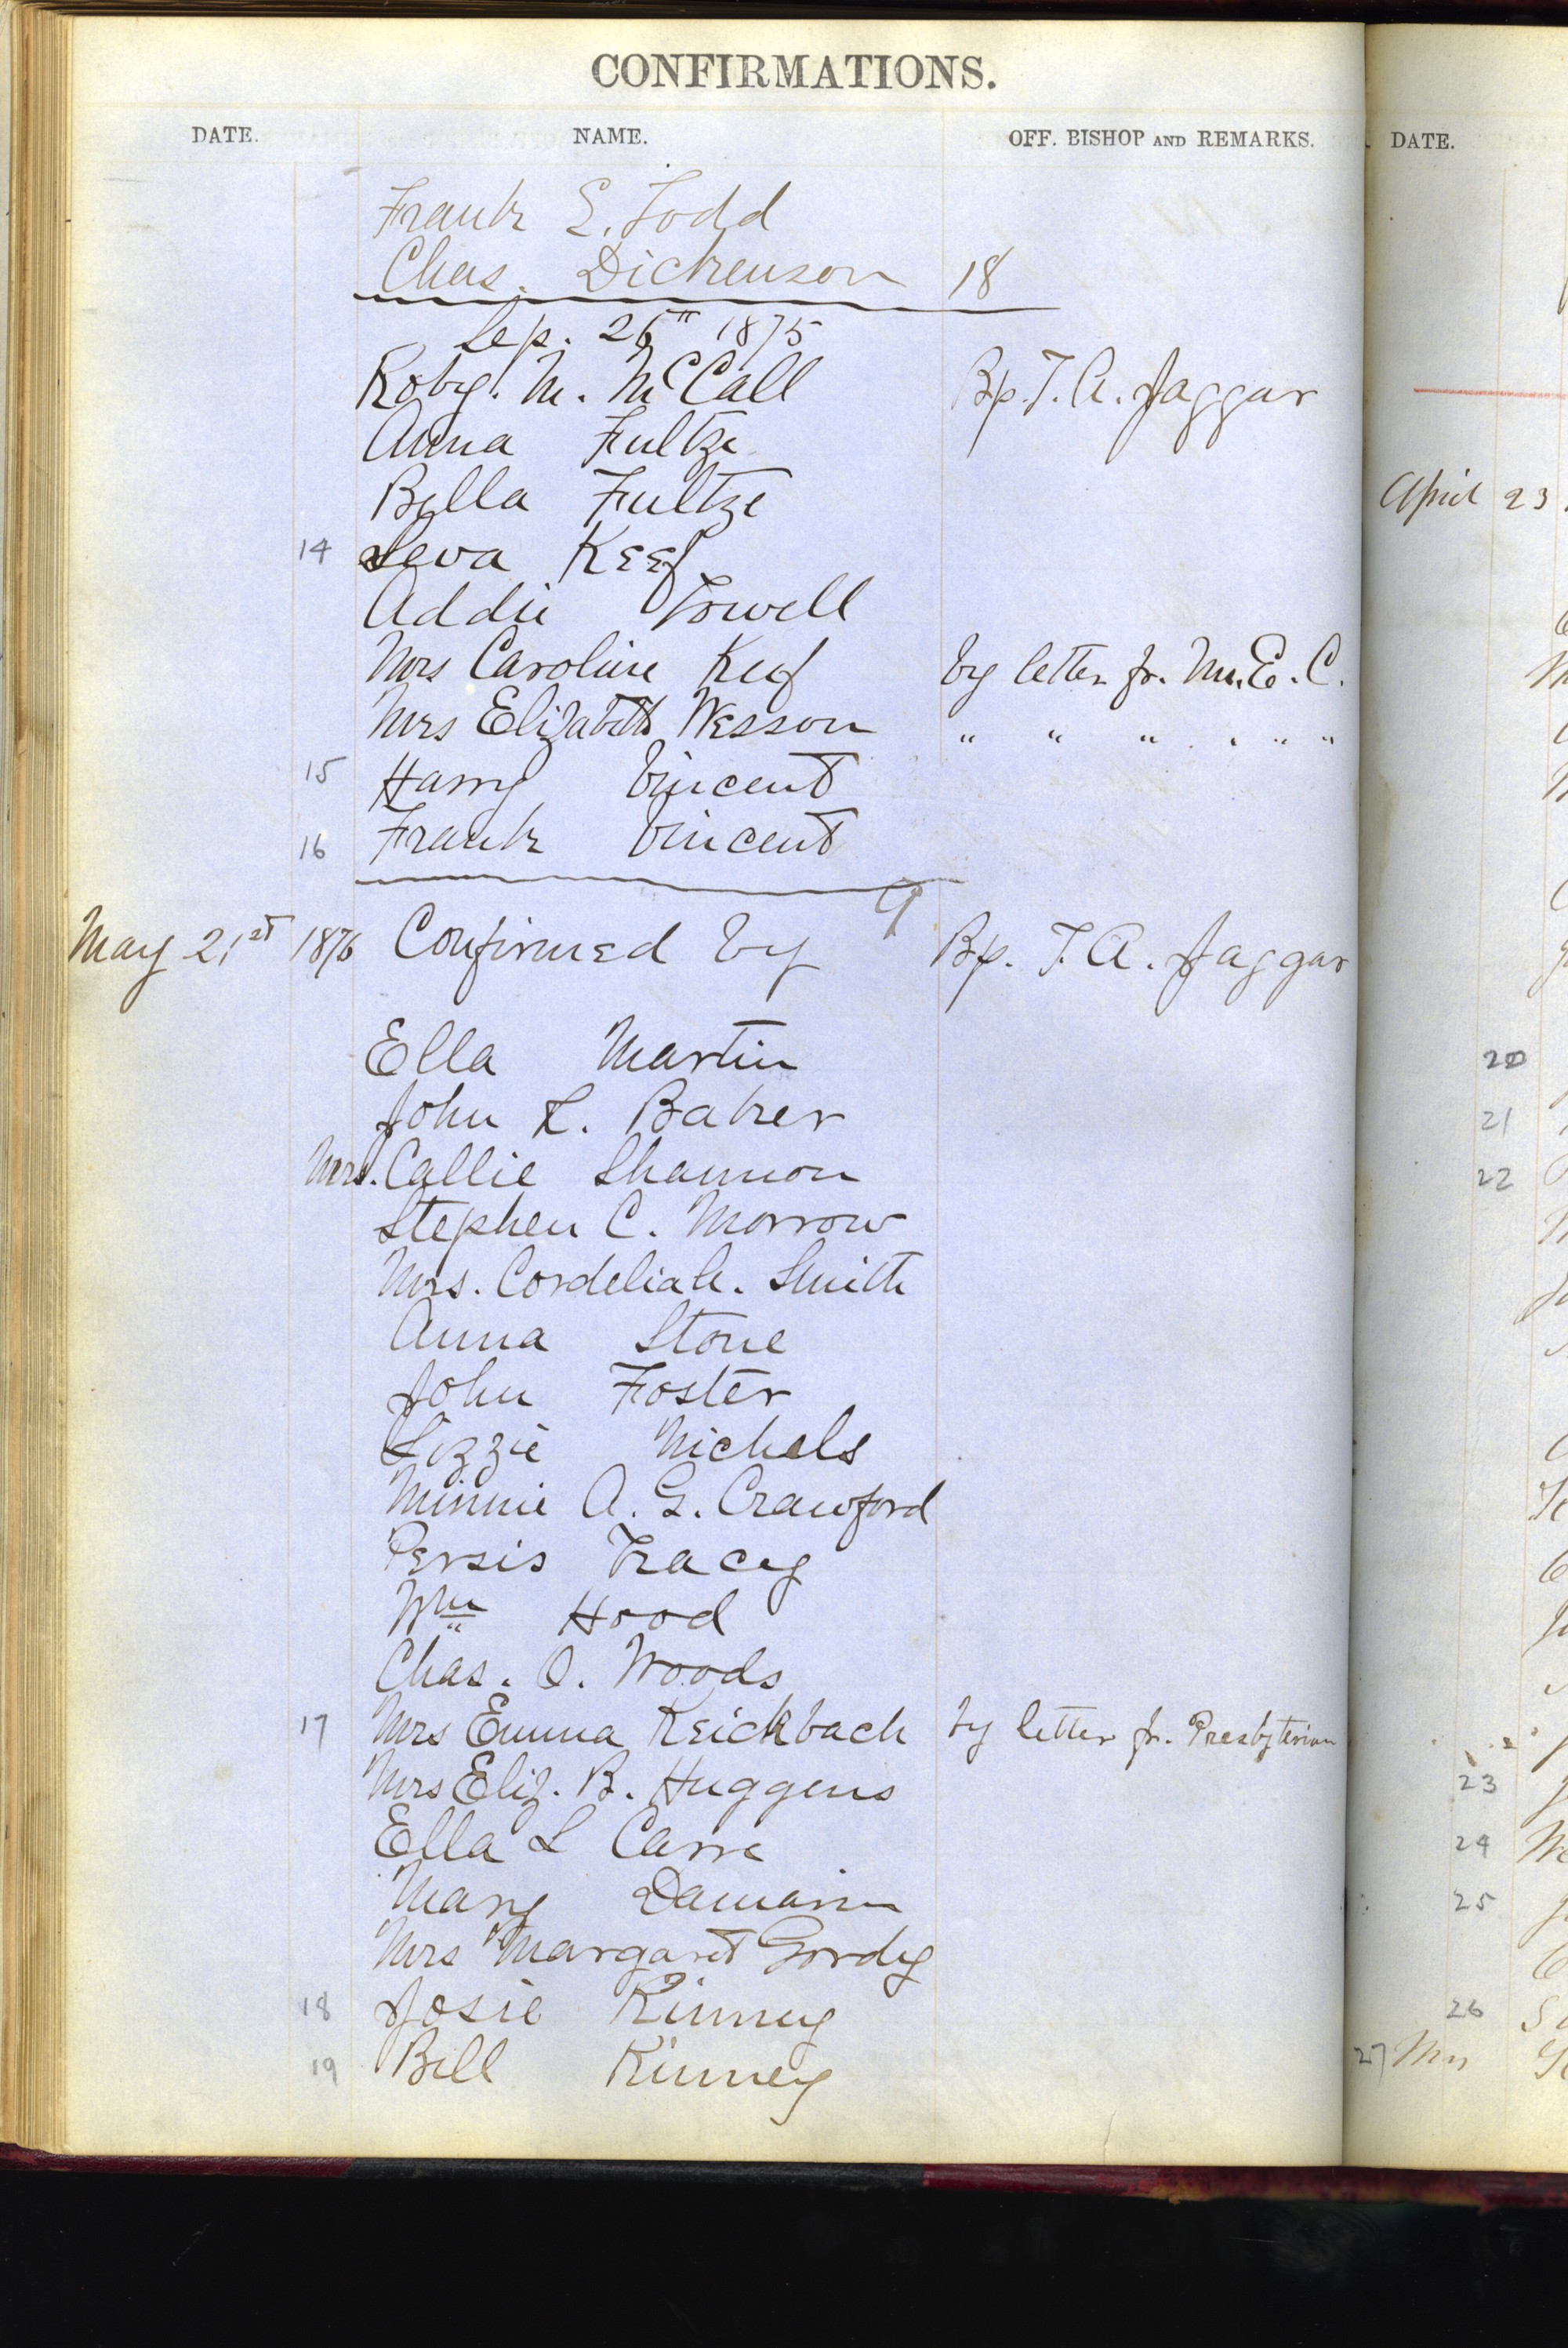 CONFIRMATIONS.
DATE. NAME. OFF. BISHOP AND REMARKS. DATE.
Frank E. Todd
Chas. Dickenson 18
Sep. 26th 1875
Robt. M. McCall Bp. T. A. Jaggar
Anna Fultze
Bella Fultze
April 23
14 Leva Keef
Addie Towell
Mrs Caroline Keef by letter fr. M. E. C.
Mrs Elizabeth Wesson " " " " " "
15 Harry Vincent
16 Frank Vincent
9
May 21st 1876 Confirmed by Bp. T. A. Jaggar
Ella Martin
20
John L. Baker
21
Mrs. Callie Shannon
22
Stephen C. Morrow
Mrs. Cordelia A. Smith
Anna Stone
John Foster
Lizzie Nichols
Minnie A. G. Crawford
Persis Tracy
Wm Hood
Chas. O. Woods
17 Mrs Emma Reickbach by letter fr. Presbyterian
Mrs Eliz. B. Huggens
23
Ella L Carre
24
Mary Damarin
25
Mrs Margaret Gordy
18 Josie Kinney
26
19 Bell Kinney
27 Mrs